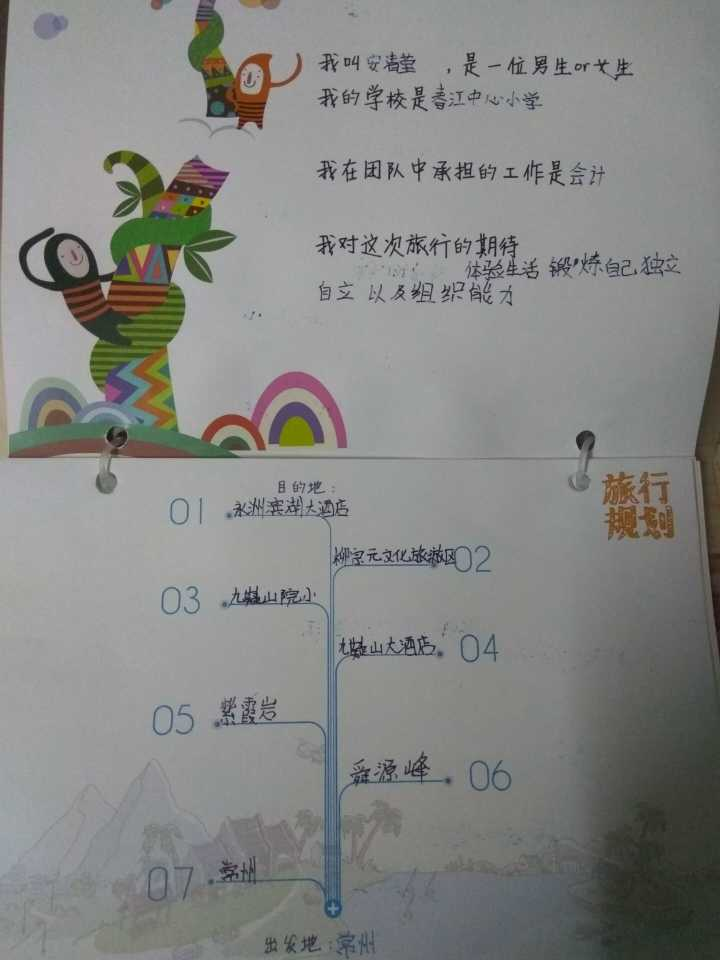 我叫安清莹，是一位男生or女生
我的学校是春江中心小学
我在团队中承担的工作是会计
我对这次旅行的期待
体验生活 锻炼自己独立
自立 以及组织能力
旅行
规划
目的地：
01 永洲滨湖大酒店
柳宗元文化旅游区 02
03 九嶷山院小
九嶷山大酒店 04
05 紫霞岩
舜源峰 06
07 常州
出发地：常州